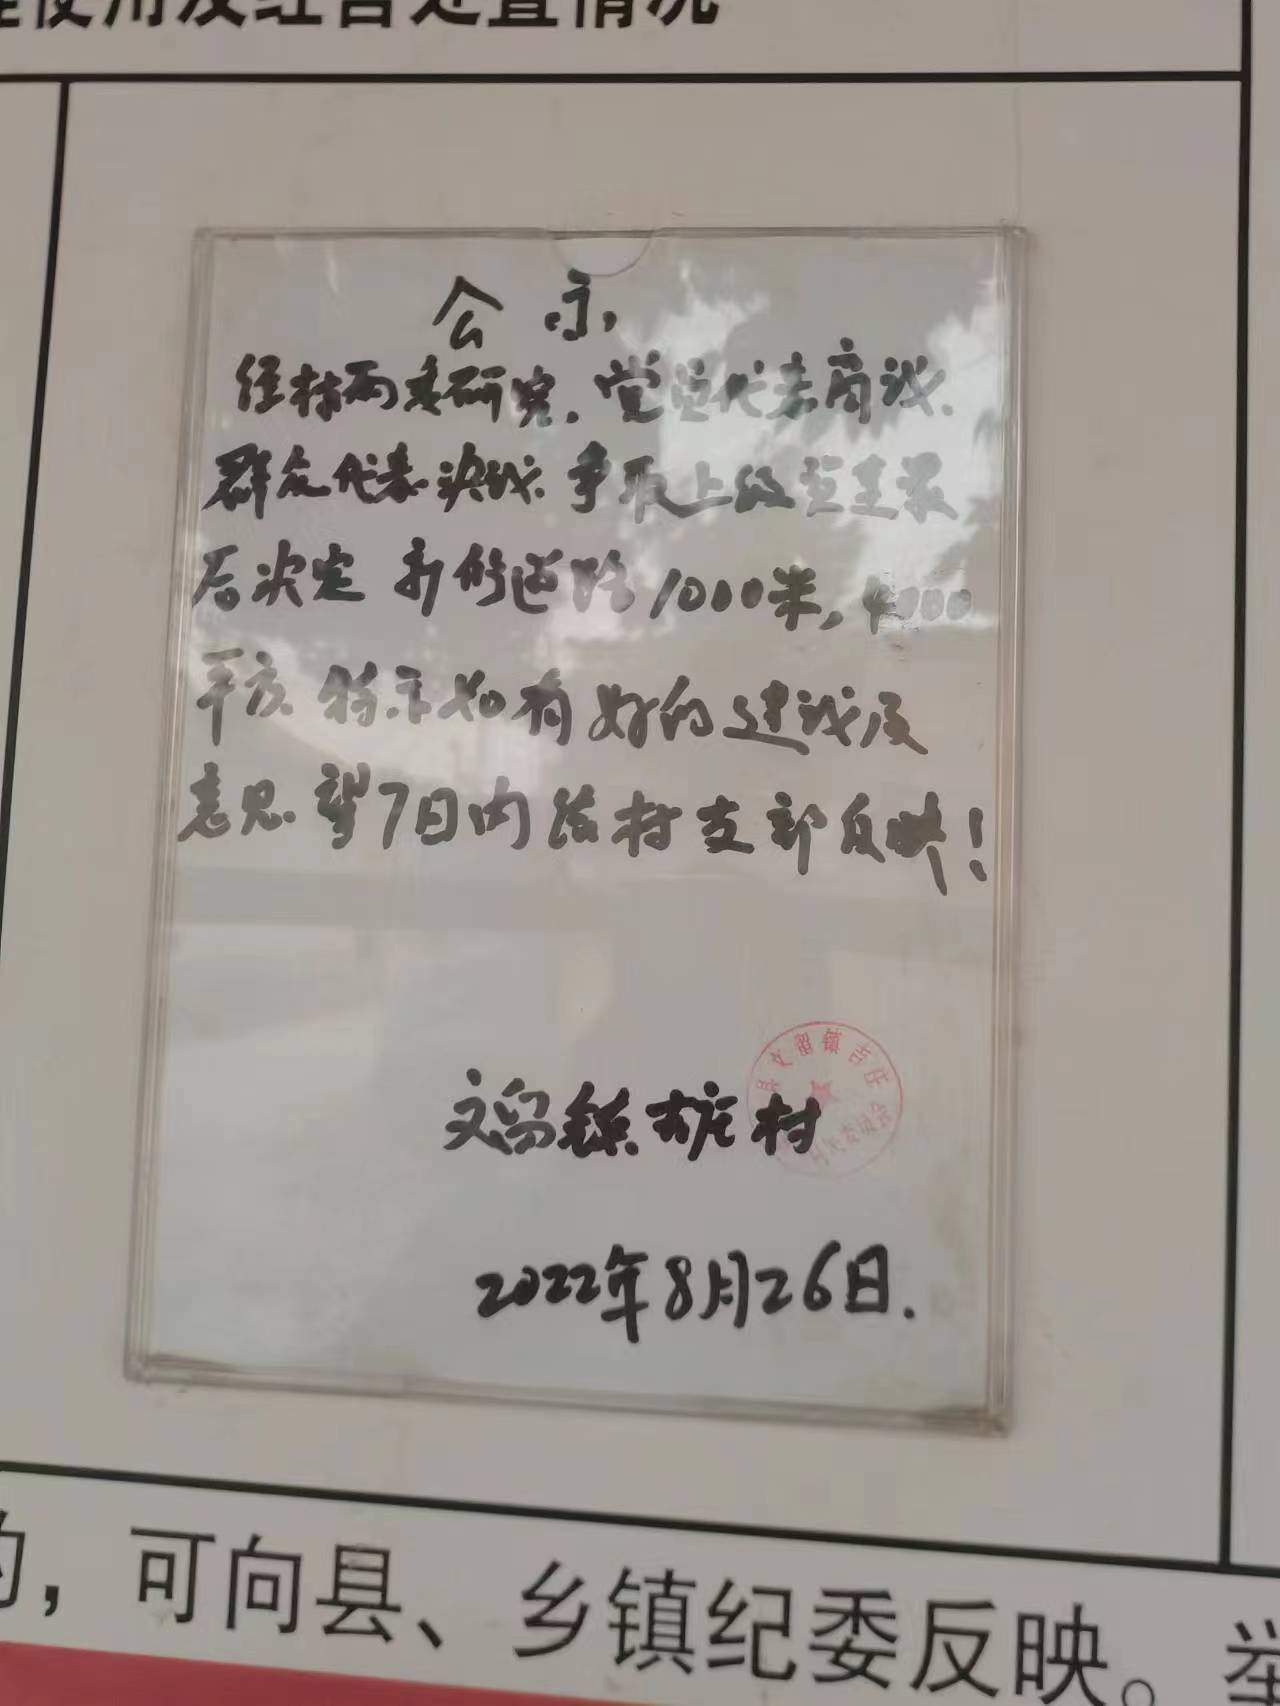 使用及红白处置情况
公示
经村两委研究.党员代表商议.
群众代表决议.争取上级
后决定 新修道路1000米,4000
平方 特示如有好的建议及
意思 望7日内给村支部反映!
县文留镇古庄
村民委员会
文留镇古庄村
2022年8月26日.
的,可向县、乡镇纪委反映。举